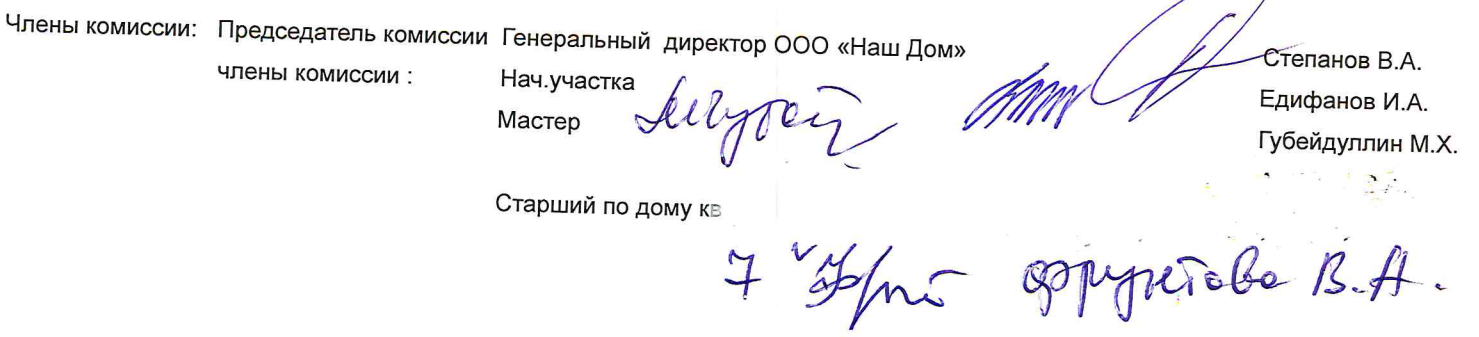 Члены комиссии: Председатель комиссии Генеральный директор ООО «Наш Дом» Степанов В.А.
члены комиссии : Нач.участка Едифанов И.А.
Мастер Губейдуллин М.Х.
Старший по дому кв
7 Фрунтова В.А.